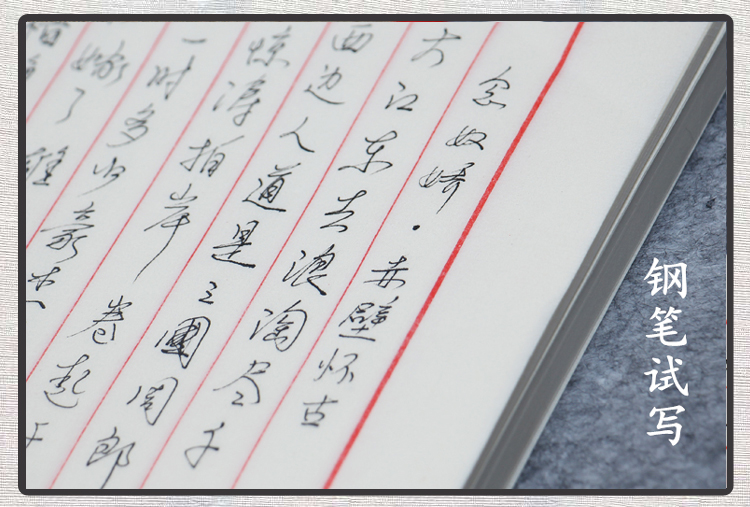 念奴娇·赤壁怀古
大江东去浪淘尽千
西边人道是三國周郎
惊涛拍岸 卷起千
一时多少豪杰
嫁了雄
钢笔试写